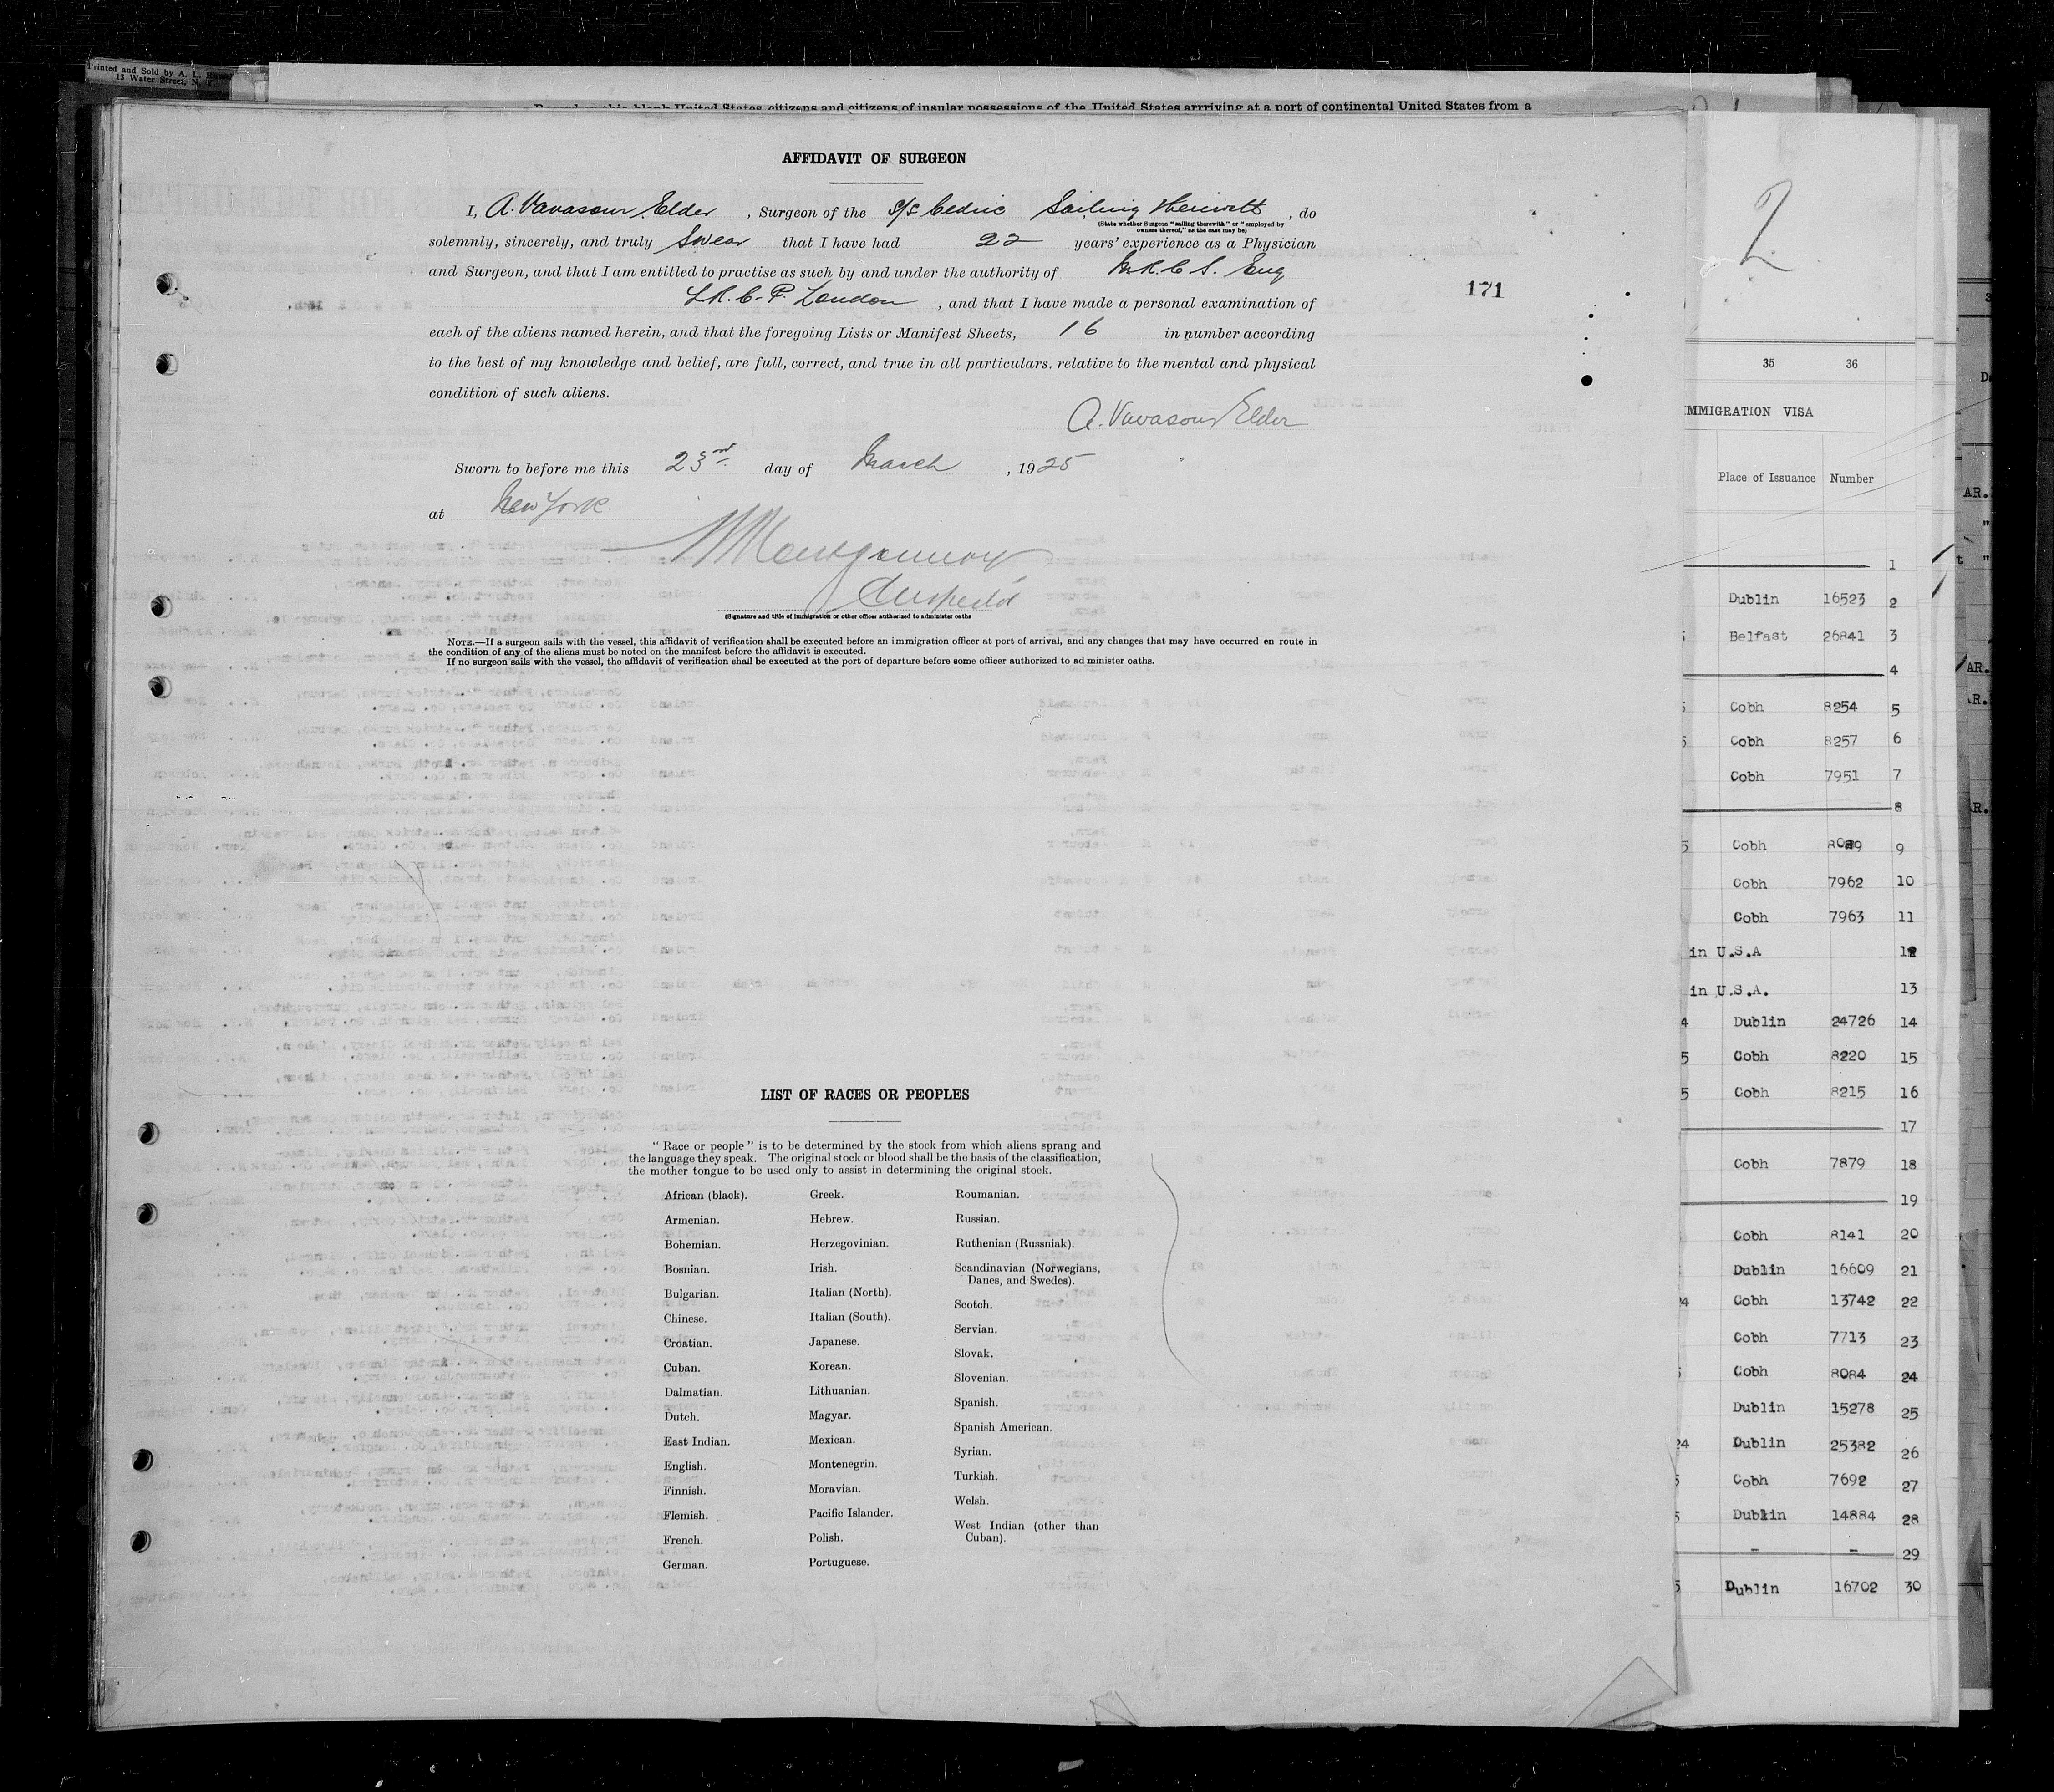 Printed and Sold by A. L.
13 Water Street, N. Y.
Record on this blank United States citizens and citizens of insular possessions of the United States arrriving at a port of continental United States from a
AFFIDAVIT OF SURGEON
I, A. Vavasour Elder, Surgeon of the S/S Cedric Sailing therewith, do
(State whether Surgeon "sailing therewith" or "employed by
owners thereof," as the case may be)
solemnly, sincerely, and truly Swear that I have had 22 years' experience as a Physician
and Surgeon, and that I am entitled to practise as such by and under the authority of M.R.C.S. Eng
L.R.C.P. London, and that I have made a personal examination of
each of the aliens named herein, and that the foregoing Lists or Manifest Sheets, 16 in number according
to the best of my knowledge and belief, are full, correct, and true in all particulars. relative to the mental and physical
condition of such aliens.
A. Vavasour Elder
Sworn to before me this 23rd day of March, 1925
at New York.
Montgomery
Inspector
(Signature and title of immigration or other officer authorized to administer oaths
NOTE.—If a surgeon sails with the vessel, this affidavit of verification shall be executed before an immigration officer at port of arrival, and any changes that may have occurred en route in
the condition of any of the aliens must be noted on the manifest before the affidavit is executed.
If no surgeon sails with the vessel, the affidavit of verification shall be executed at the port of departure before some officer authorized to administer oaths.
171
LIST OF RACES OR PEOPLES
"Race or people" is to be determined by the stock from which aliens sprang and
the language they speak. The original stock or blood shall be the basis of the classification,
the mother tongue to be used only to assist in determining the original stock.
African (black).
Armenian.
Bohemian.
Bosnian.
Bulgarian.
Chinese.
Croatian.
Cuban.
Dalmatian.
Dutch.
East Indian.
English.
Finnish.
Flemish.
French.
German.
Greek.
Hebrew.
Herzegovinian.
Irish.
Italian (North).
Italian (South).
Japanese.
Korean.
Lithuanian.
Magyar.
Mexican.
Montenegrin.
Moravian.
Pacific Islander.
Polish.
Portuguese.
Roumanian.
Russian.
Ruthenian (Russniak).
Scandinavian (Norwegians,
Danes, and Swedes).
Scotch.
Servian.
Slovak.
Slovenian.
Spanish.
Spanish American.
Syrian.
Turkish.
Welsh.
West Indian (other than
Cuban).
2
35 36
IMMIGRATION VISA
Place of Issuance Number
1
Dublin 16523 2
Belfast 26841 3
4
Cobh 8254 5
Cobh 8257 6
Cobh 7951 7
8
5 Cobh 9
Cobh 7962 10
Cobh 7963 11
in U.S.A 12
in U.S.A. 13
4 Dublin 24726 14
5 Cobh 8220 15
5 Cobh 8215 16
17
Cobh 7879 18
19
Cobh 8141 20
Dublin 16609 21
24 Cobh 13742 22
Cobh 7713 23
5 Cobh 8084 24
Dublin 15278 25
24 Dublin 25382 26
5 Cobh 7692 27
5 Dublin 14884 28
- - 29
5 Dublin 16702 30
AR.
"
t "
AR.
AR.
R.